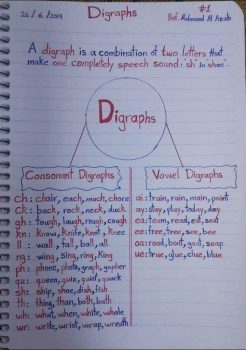 26/6/2019
Digraphs
#1
Prof. Mahmoud Al Azab
A digraph is a combination of two letters that
make one completely speech sound: "sh" in "shoe".
Digraphs
Consonant Digraphs
ch: chair, each, much, chore
ck: back, rock, neck, duck
gh: tough, laugh, rough, cough
kn: know, knife, knot, knee
ll: wall, tall, ball, all
ng: wing, sing, ring, king
ph: phone, photo, graph, gopher
qu: queen, quiz, quiet, quack
sh: ship, shoe, dish, fish
th: thing, than, both, bath
wh: what, when, white, whale
wr: write, wrist, wrap, wreath
Vowel Digraphs
ai: train, rain, main, paint
ay: stay, play, today, day
ea: team, read, eat, seat
ee: free, tree, see, bee
oa: road, boat, goat, soap
ue: true, glue, clue, blue